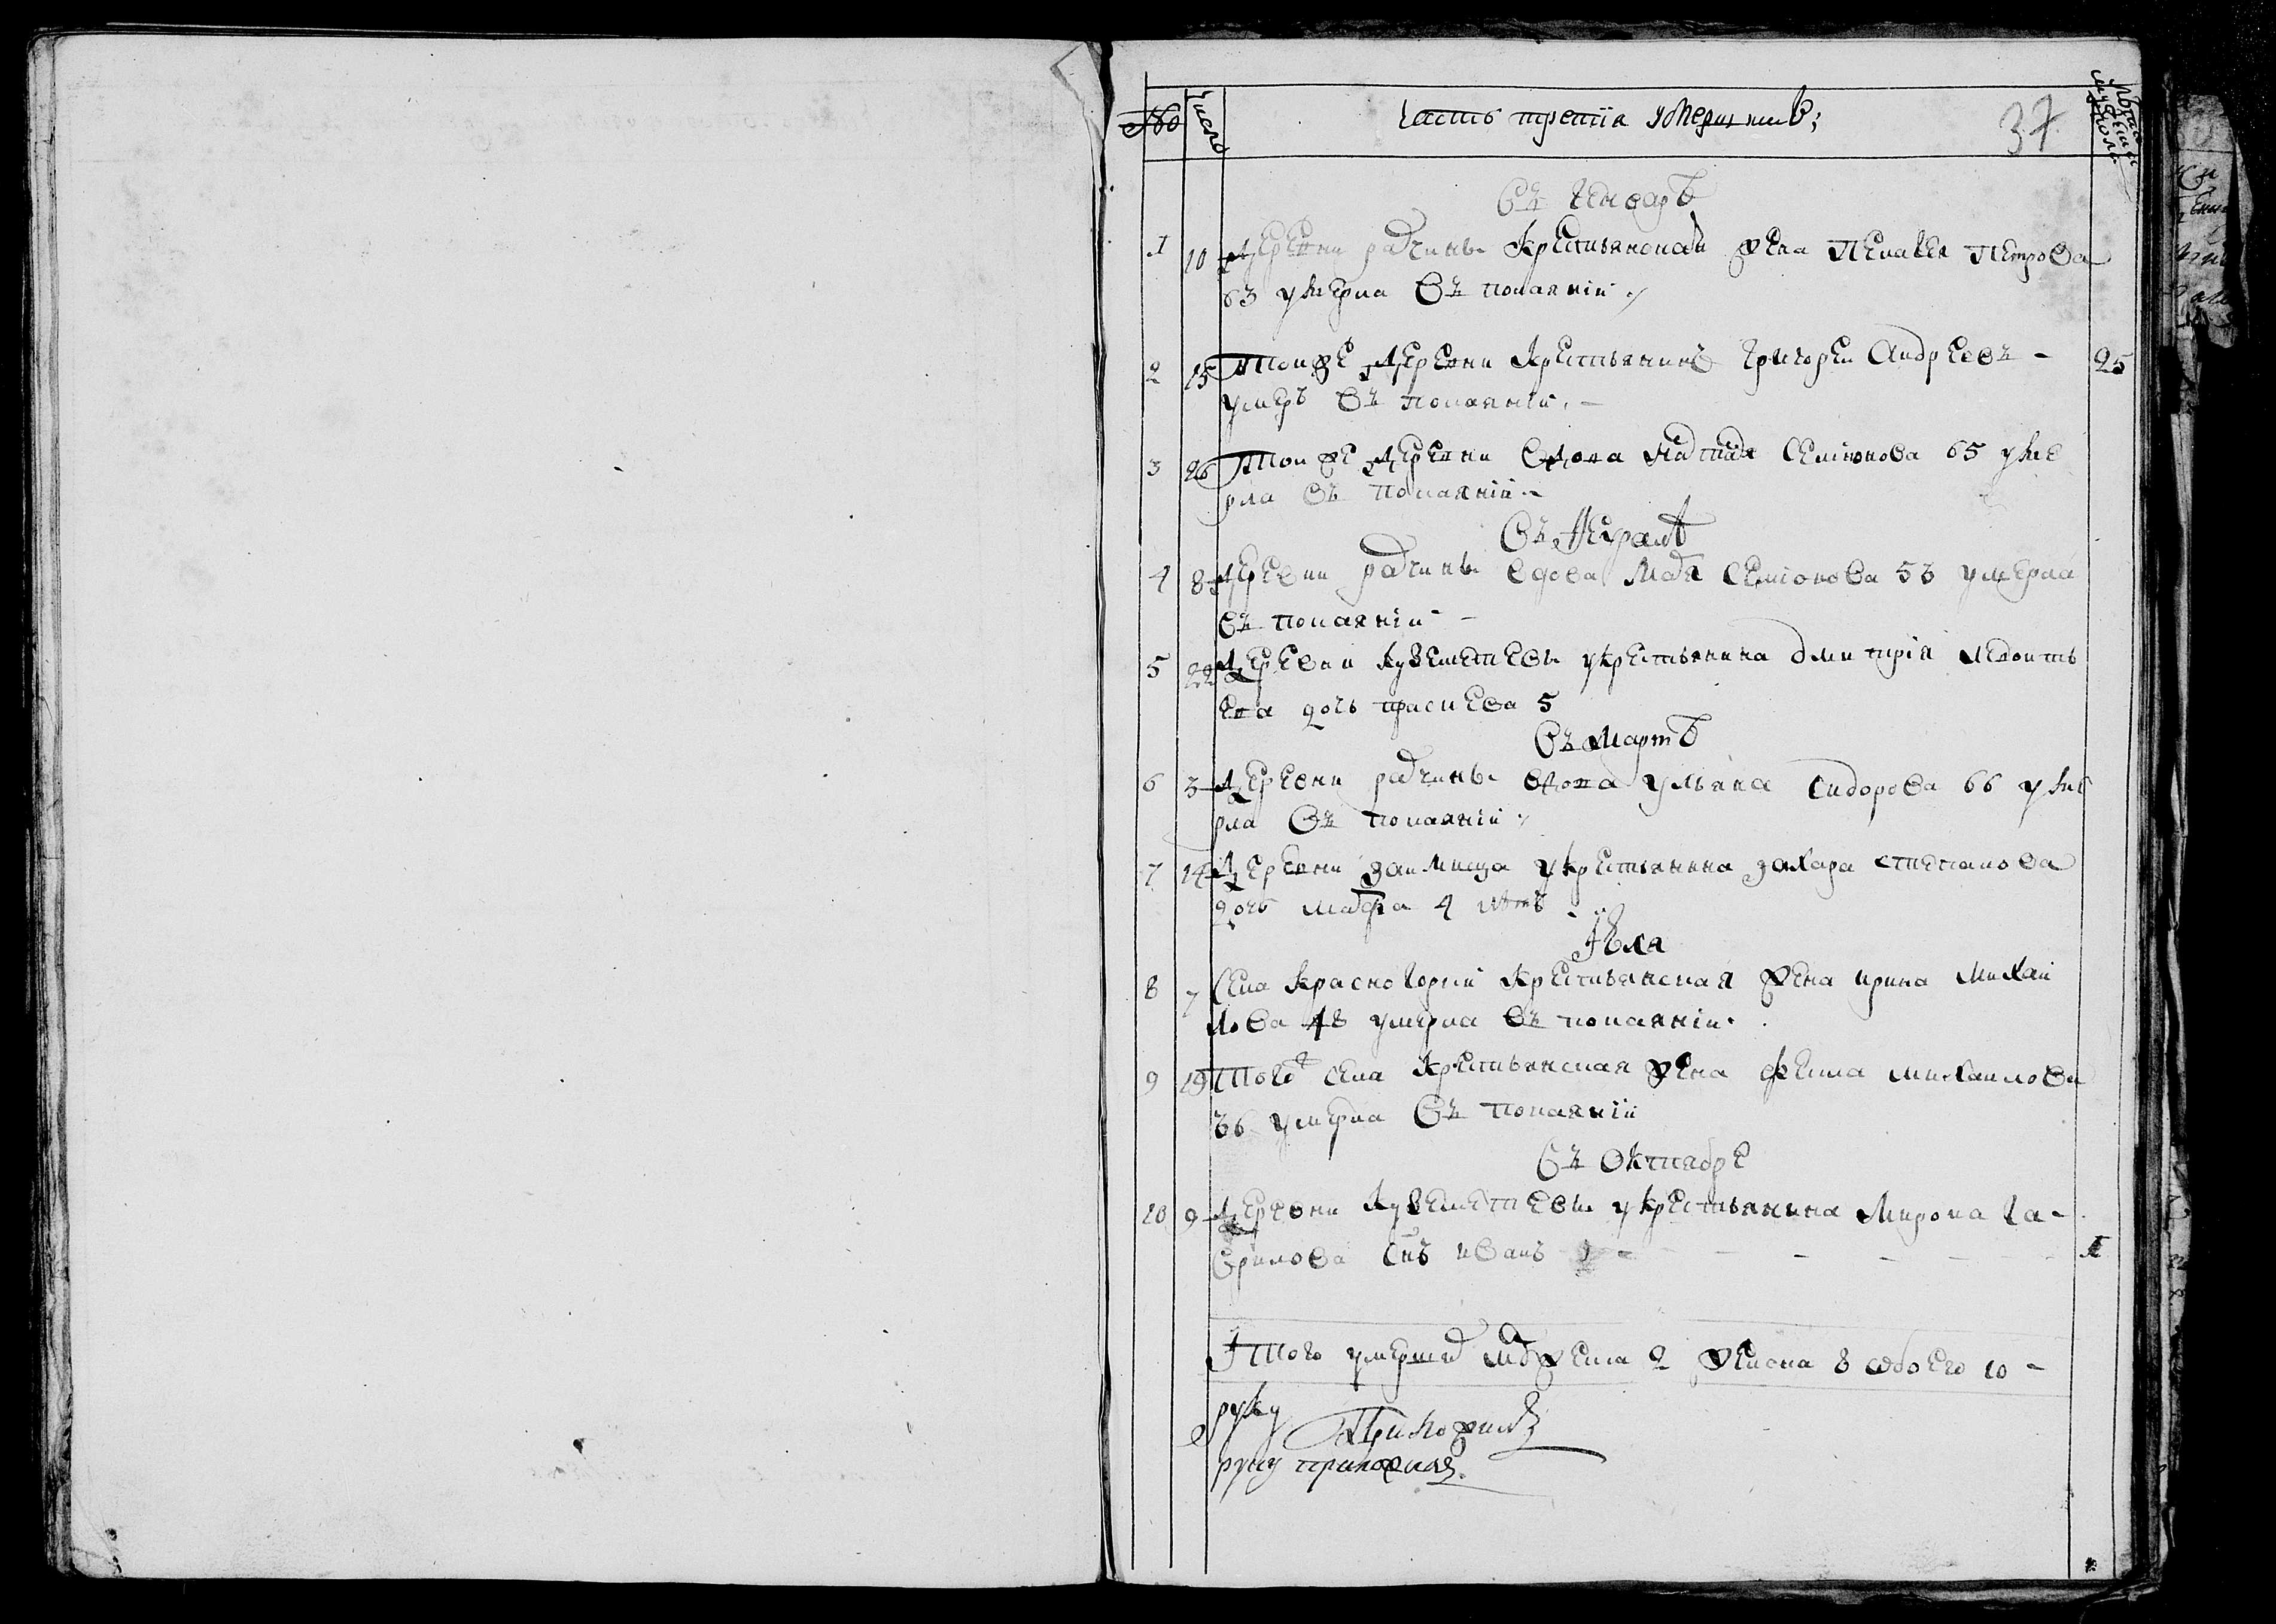 № число часть третїя умерших; 37 лѣта мужеска пола
въ генварѣ
1 10 деревни рачины крестьянская жена пелагея петрова
63 умерла въ покаянїи
2 15 тоиже деревни крестьянинъ григореи андреевъ - 25
умеръ въ покаянїи. -
3 26 тоиже деревни вдова семїонова 65 уме
рла въ покаянїи -
4 8 деревни рачины вдова семїонова 53 умерла
въ покаянїи -
5 22 деревни укрестьянина дмитрїя леонть
ева дочь 5
въ мартѣ
6 3 деревни рачины вдова ульяна сидорова 66 уме
рла въ покаянїи
7 14 деревни заимища укрестьянина захара степанова
дочь марфа 4 лѣтъ
8 7 села красногорїи крестьянская жена ирина михаи
лова 48 умерла въ покаянїи.
9 19 того села крестьянская жена михаилова
36 умерла въ покаянїи
въ октябре
10 9 деревни укрестьянина мирона га-
врилова снъ иванъ 1 - - - - - 1
Итого умерших мужеска 2 женска 8 обоего 10 -
руку приложилъ
руку приложилъ.